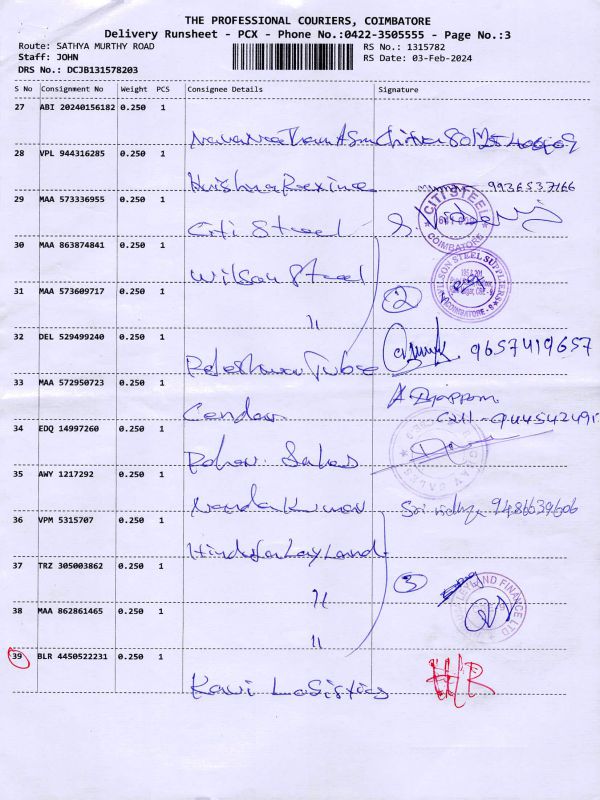 THE PROFESSIONAL COURIERS, COIMBATORE
Delivery Runsheet - PCX - Phone No.:0422-3505555 - Page No.:3
Route: SATHYA MURTHY ROAD RS No.: 1315782
Staff: JOHN RS Date: 03-Feb-2024
DRS No.: DCJB131578203
S No Consignment No Weight PCS Consignee Details Signature
27 ABI 20240156182 0.250 1
28 VPL 944316285 0.250 1
29 MAA 573336955 0.250 1
Citi Steel
CITI STEEL
COIMBATORE
30 MAA 863874841 0.250 1
Wilson Steel
WILSON STEEL SUPPLIERS
COIMBATORE - 9
31 MAA 573609717 0.250 1
"
2
32 DEL 529499240 0.250 1
Tube
9657419657
33 MAA 572950723 0.250 1
34 EDQ 14997260 0.250 1
Sales
35 AWY 1217292 0.250 1
Nanda Kumar
Sri vidhya 9486639606
36 VPM 5315707 0.250 1
Hinduja Leyland
37 TRZ 305003862 0.250 1
"
3
LEYLAND FINANCE LTD
38 MAA 862861465 0.250 1
"
39 BLR 4450522231 0.250 1
Kavi Logistics